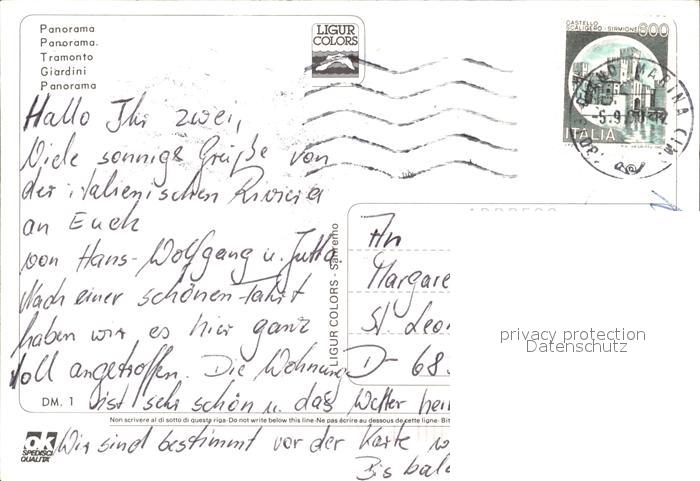 Panorama
Panorama.
Tramonto
Giardini
Panorama
LIGUR
COLORS
CASTELLO
SCALIGERO - SIRMIONE
600
ITALIA
MARINA (IM
-5.9.
Hallo Ihr zwei,
Viele sonnige Grüße von
der italienischen Riviera
an Euch
von Hans-Wolfgang u. Jutta.
Nach einer schönen Fahrt
haben wir es hier ganz
toll angetroffen. Die Wohnung
ist sehr schön u. das Wetter
Wir sind bestimmt vor der Karte
Bis
An
Margare
St. Leo
D- 68
LIGUR COLORS - Sanremo
privacy protection
Datenschutz
DM. 1
Non scrivere al di sotto di questa riga - Do not write below this line - Ne pas écrire au dessous de cette ligne - Bit
ok
SPEDISCI
QUALITA'